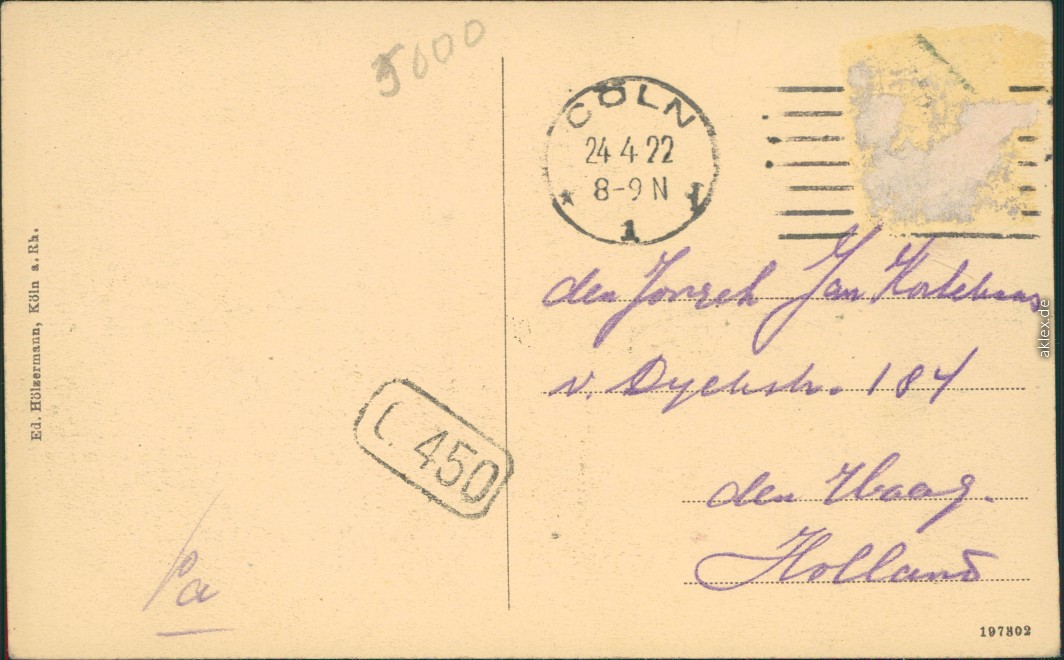 5000
CÖLN
24 4 22
8-9 N
* 1
den Jan
v. Dyckstr. 184
den Haag.
Holland
L. 450
Pa
Ed. Hölzermann, Köln a. Rh.
197802
aklex.de